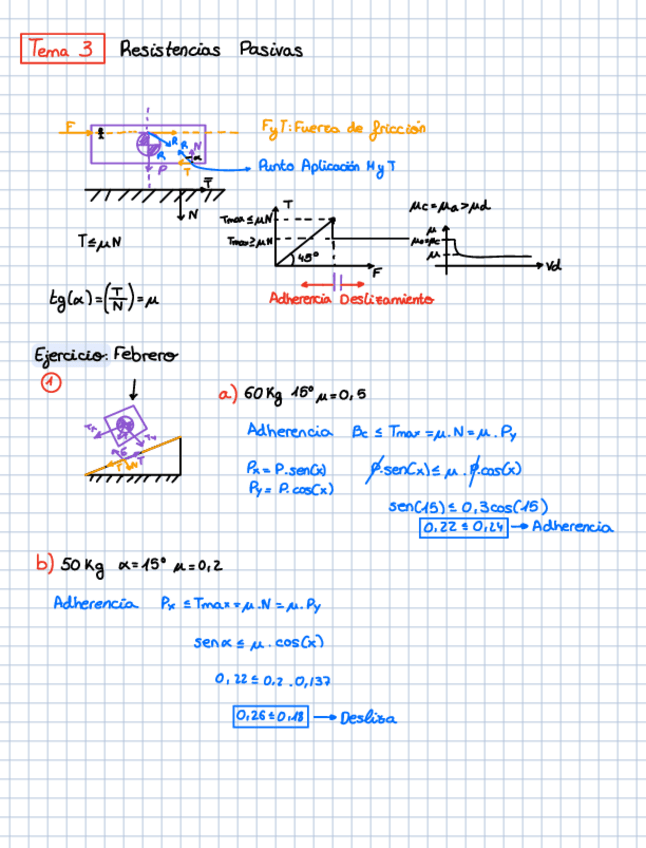 Tema 3 Resistencias Pasivas
F
F y T: Fuerza de fricción
R R N
R α
P T
Punto Aplicación N y T
T
N
T ≤ μN
tg(α) = (T/N) = μ
T
Tmax ≤ μN
Tmax ≥ μN
45°
F
Adherencia Deslizamiento
μc = μa > μd
μ
μa=μc
μ
Vd
Ejercicio: Febrero
1
T
F N
a) 60 Kg 15° μ = 0,5
Adherencia Bc ≤ Tmax = μ.N = μ.Py
Px = P.sen(x) P.sen(x) ≤ μ.P.cos(x)
Py = P.cos(x)
sen(15) ≤ 0,3cos(15)
0,22 ≤ 0,24 → Adherencia
b) 50 Kg α = 15° μ = 0,2
Adherencia Px ≤ Tmax = μ.N = μ.Py
sen α ≤ μ.cos(x)
0,22 ≤ 0.2 . 0,137
0,26 ≤ 0,18 → Desliza